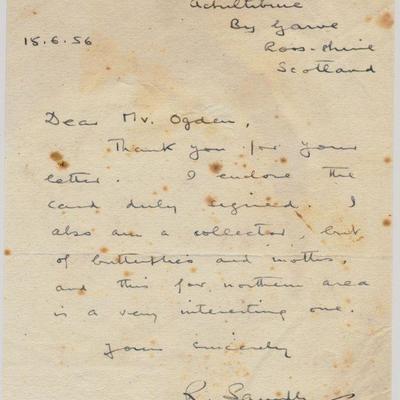 Achiltibuie
By Garve
Ross-shire
Scotland
18.6.56
Dear Mr. Ogden,
Thank you for your
letter. I enclose the
card duly signed. I
also am a collector, but
of butterflies and moths,
and this far northern area
is a very interesting one.
Yours sincerely
R.